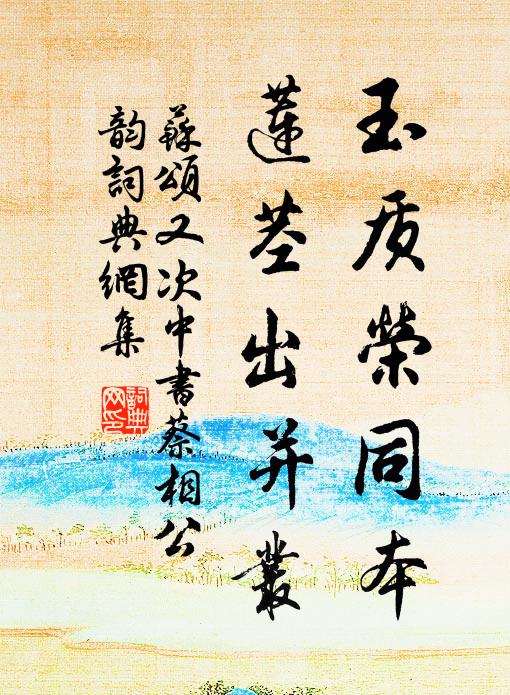 玉质榮同本
蓮茎出并叢
蘇頌又次中書蔡相公
韵詞典網集
詞典网印